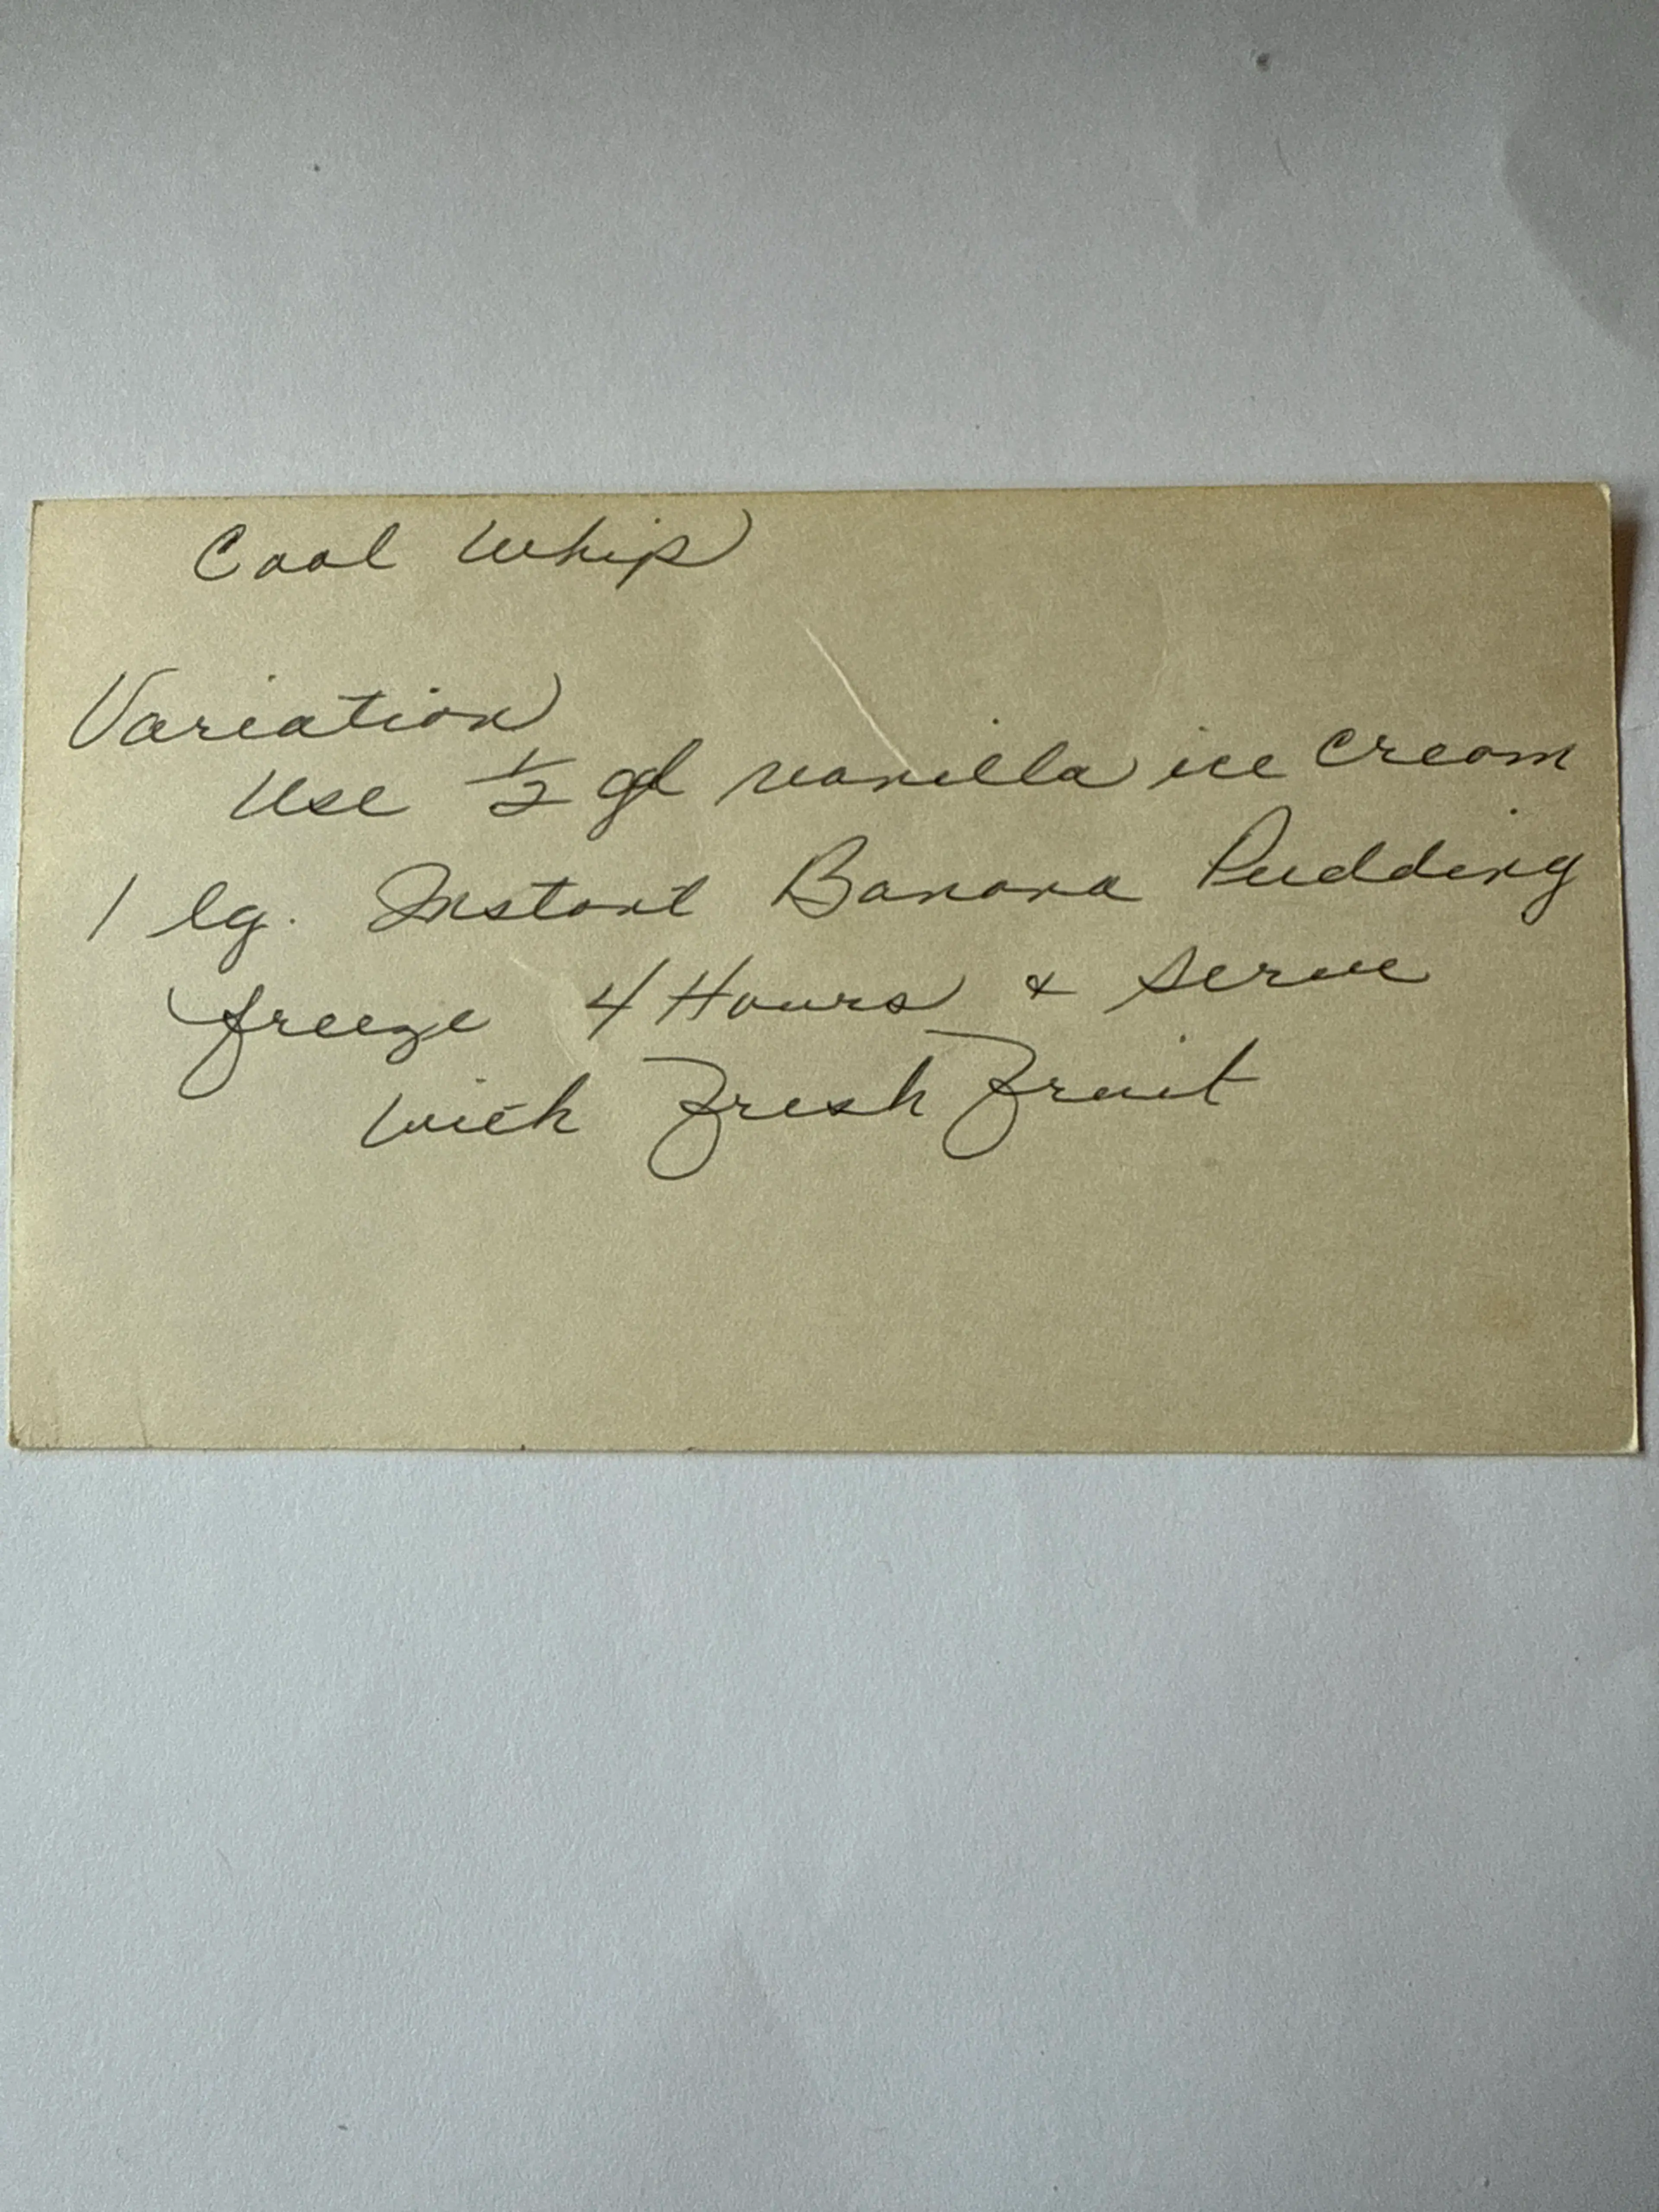 Cool Whip
Variation
Use 1/2 gl vanilla ice cream
1 lg. Instant Banana Pudding
freeze 4 Hours & serve
with Fresh Fruit